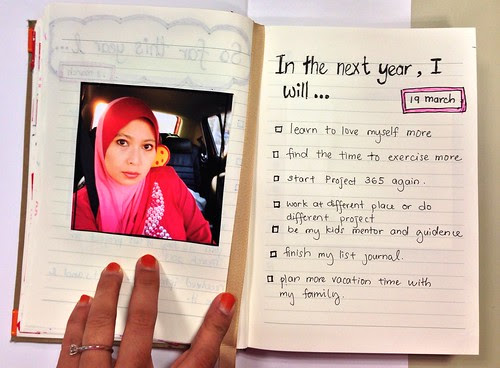 So far this year I...
In the next year, I
will...
19 march
learn to love myself more
find the time to exercise more
start Project 365 again.
work at different place or do
different project
be my kids mentor and guidence
finish my list journal.
plan more vacation time with
my family.